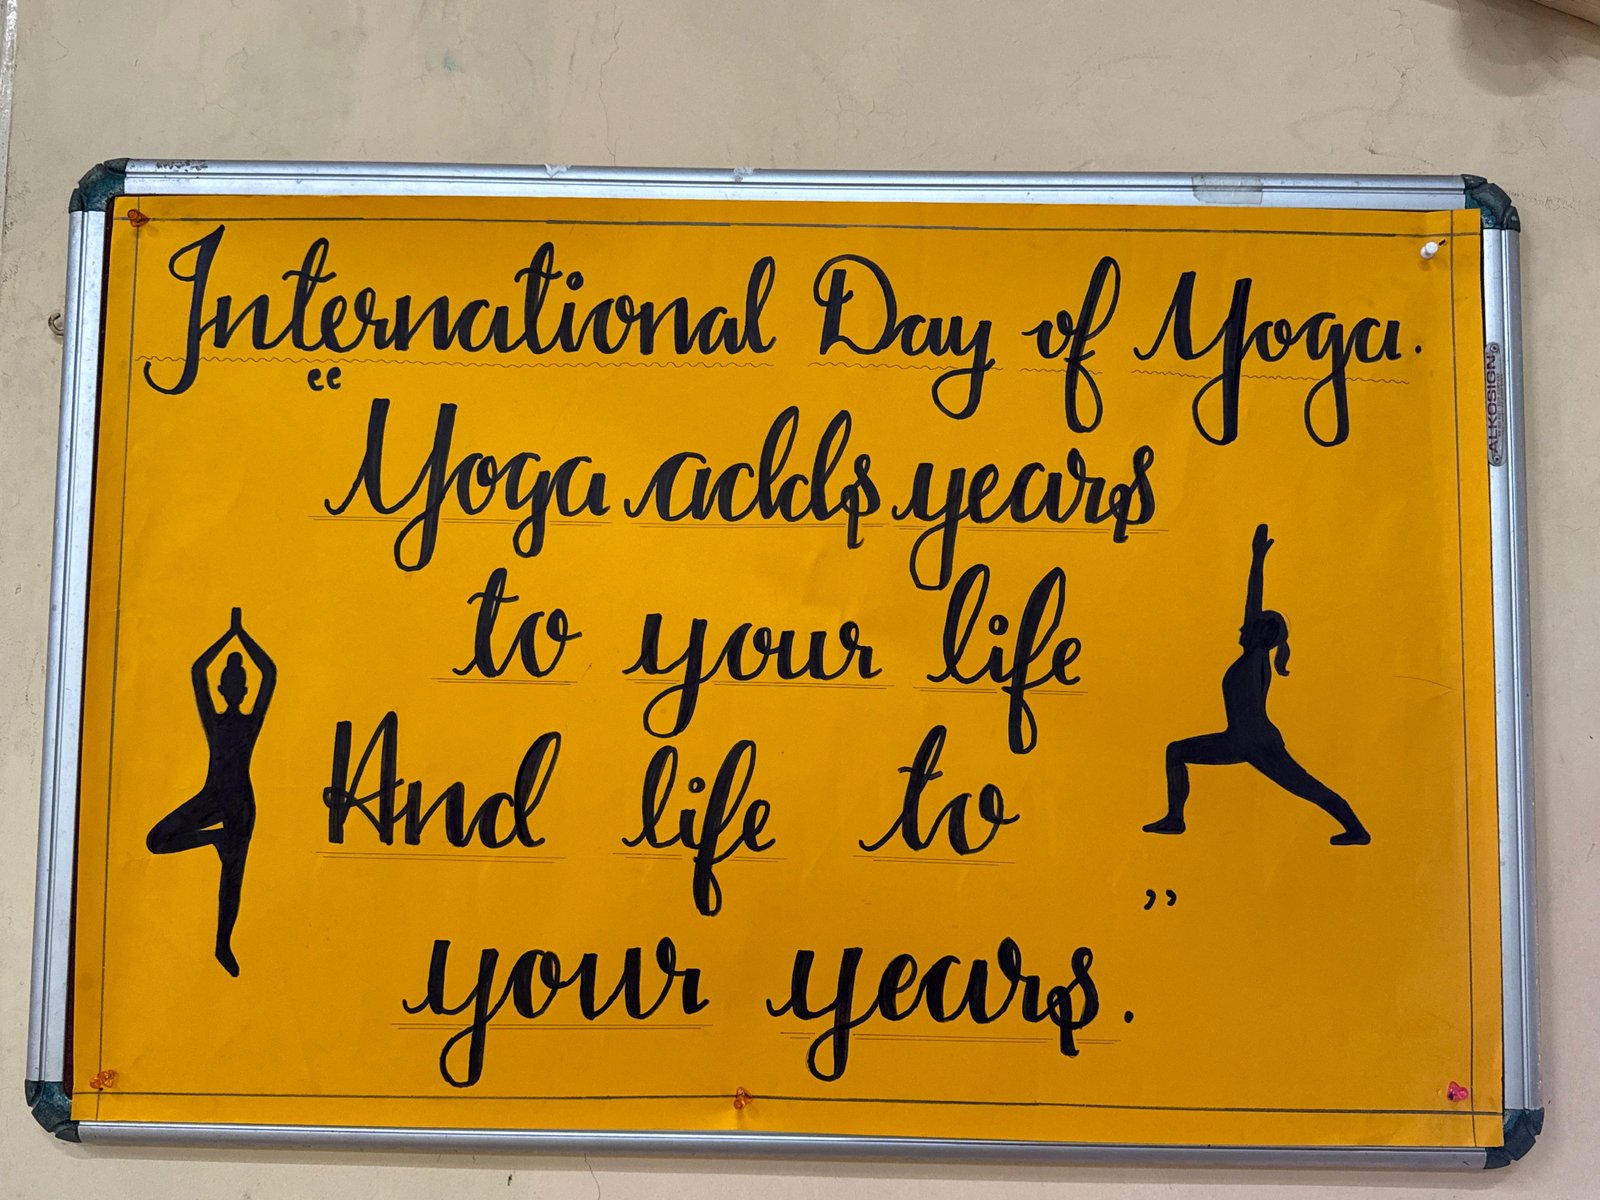 International Day of Yoga.
“Yoga adds years
to your life
And life to
your years.”
ALKOSIGN